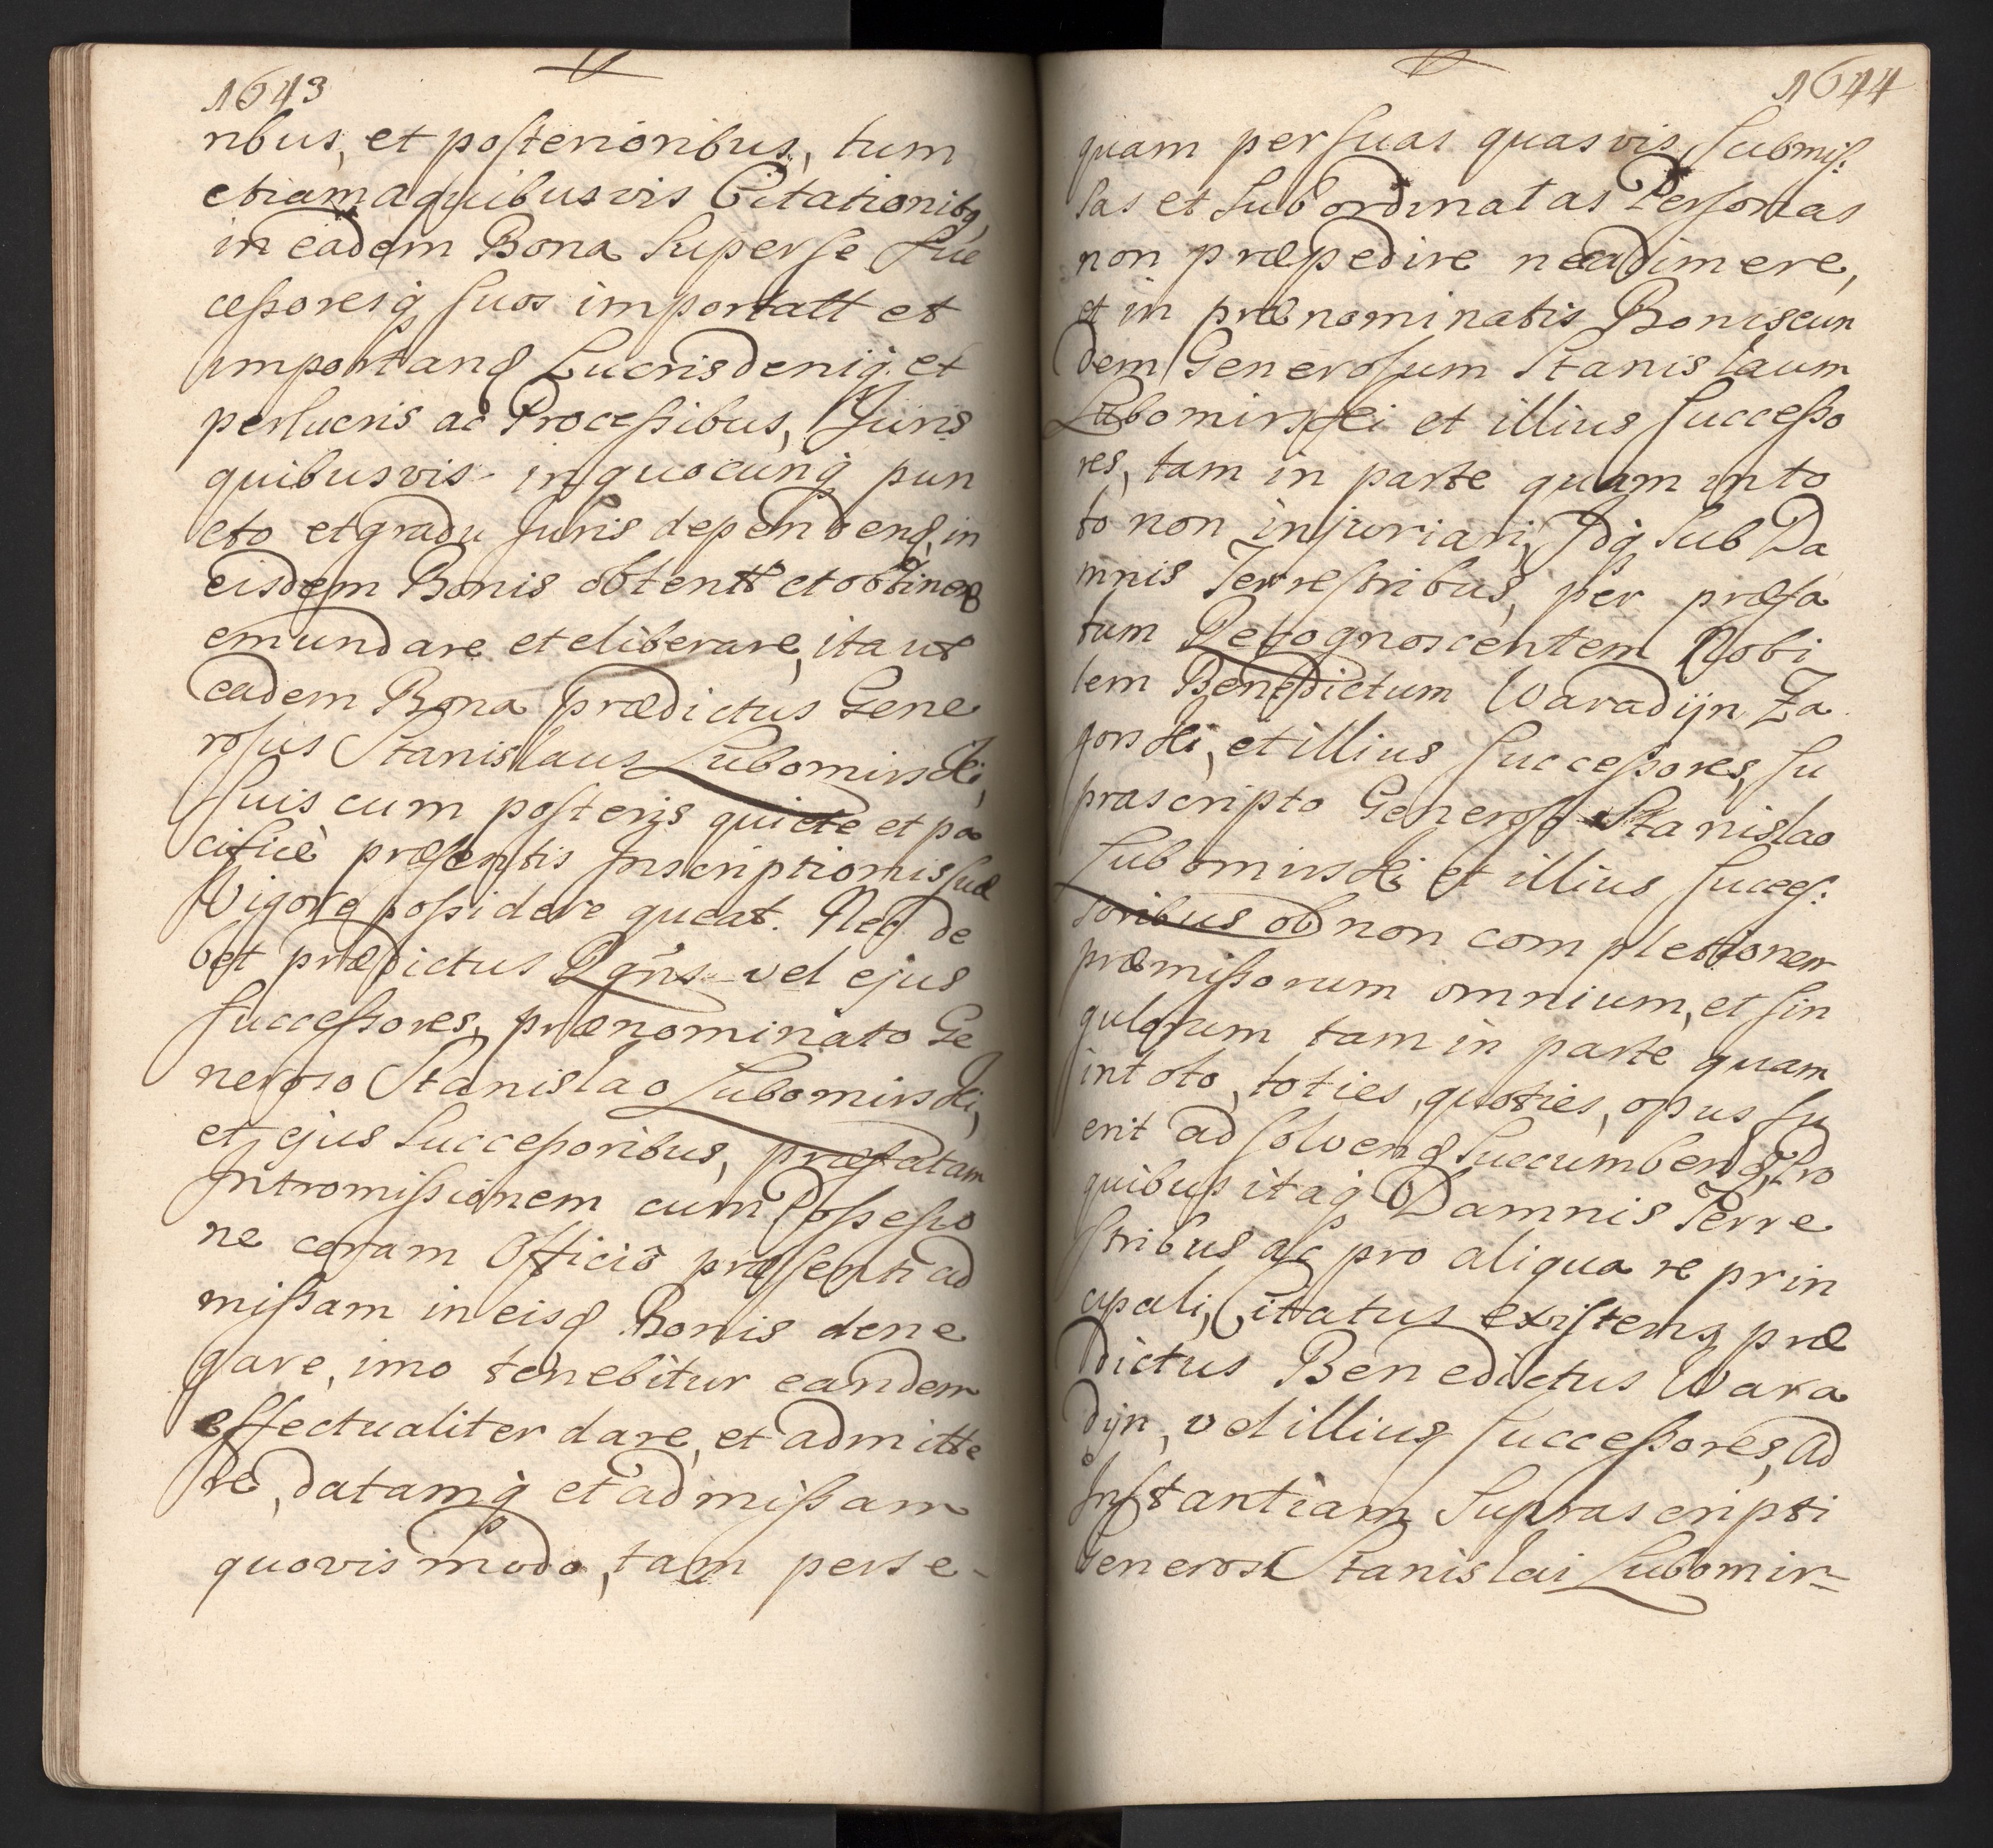 1643
ribus, et posterioribus, tum
etiam a quibusvis Citationibq
in eadem Bona super se suc
cessoresq suos importatt et
importand Lucris deniq et
perlucris ac Processibus, Juris
quibusvis in quocunq pun
cto et gradu Juris dependend, in
eisdem Bonis obtentt et obtinend
emundare et eliberare, ita ut
eadem Bona prædictus Gene
rosus Stanislaus Lubomirski,
suis cum posteris quiete et pa
cificè præsentis Inscriptionis suæ
Vigore possidere queat. Nec de
bet prædictus Rgñs vel ejus
Successores, prænominato Ge
neroso Stanislao Lubomirski,
et ejus Successoribus, præfatam
Intromissionem cum Possessio
ne coram Officio præsenti ad
missam in eisd Bonis dene
gare, imo tenebitur eandem
effectualiter dare, et admitte
re, datamq et admissam
quovis modo, tam per se
1644
quam per suas quasvis submis:
sas et subordinatas Personas
non præpedire nec adimere,
et in prænominatis Bonis eun
dem Generosum Stanislaum
Lubomirski et illius successo
res, tam in parte quam in to
to non injuriari, Idq sub Da
mnis Terrestribus, per præfa
tum Recognoscentem Nobi
lem Benedictum Waradijn Za
gorski, et illius Successores, su
prascripto Generoso Stanislao
Lubomirski et illius succes:
soribus ob non completionem
præmissorum omnium, et sin
gulorum tam in parte quam
in toto, toties, quoties, opus fu
erit ad solvend succumbend, Pro
quibus itaq Damnis Terre
stribus ac pro aliqua re prin
cipali, Citatus existens, præ
dictus Benedictus Wara
dijn, vel illius successores, ad
Instantiam suprascripti
Generosi Stanislai Lubomir-